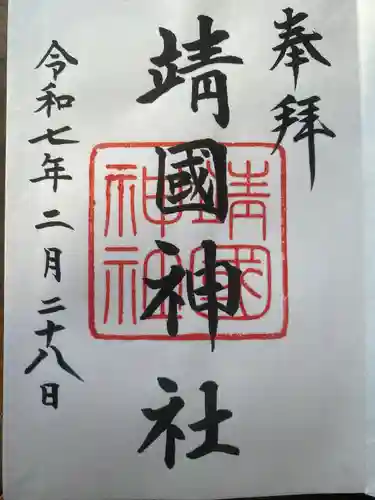 奉拝
靖國神社
靖國神社
令和七年二月二十八日